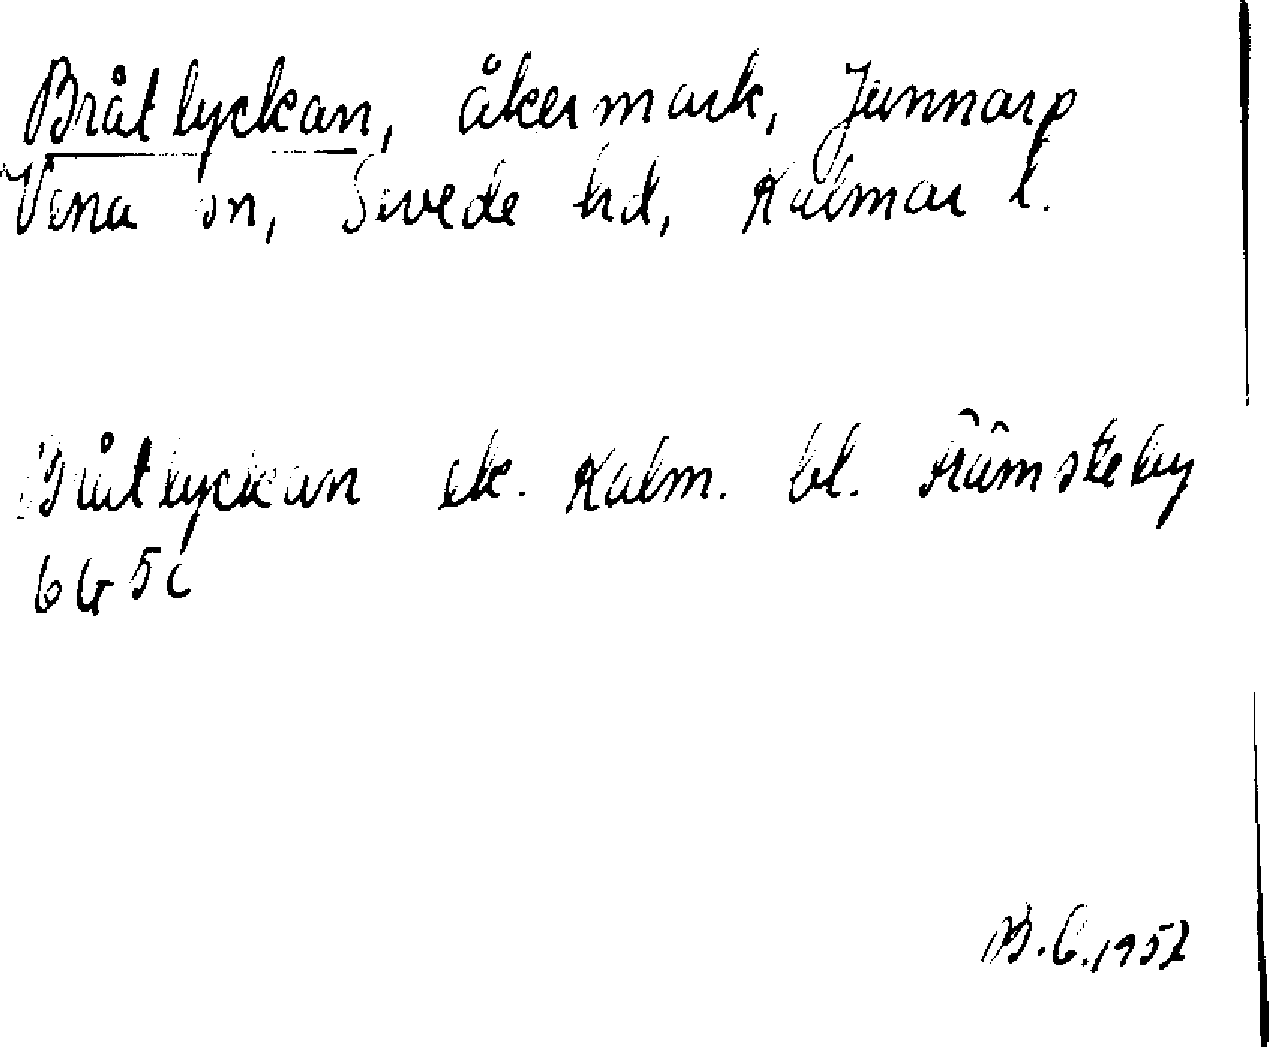 Bråtlyckan, åkermark, Jannarp
Vena sn, Sevede hd, Kalmar l.
Bråtlyckan ek. Kalm. bl. Främsteby
6G5c
B.G. 1952